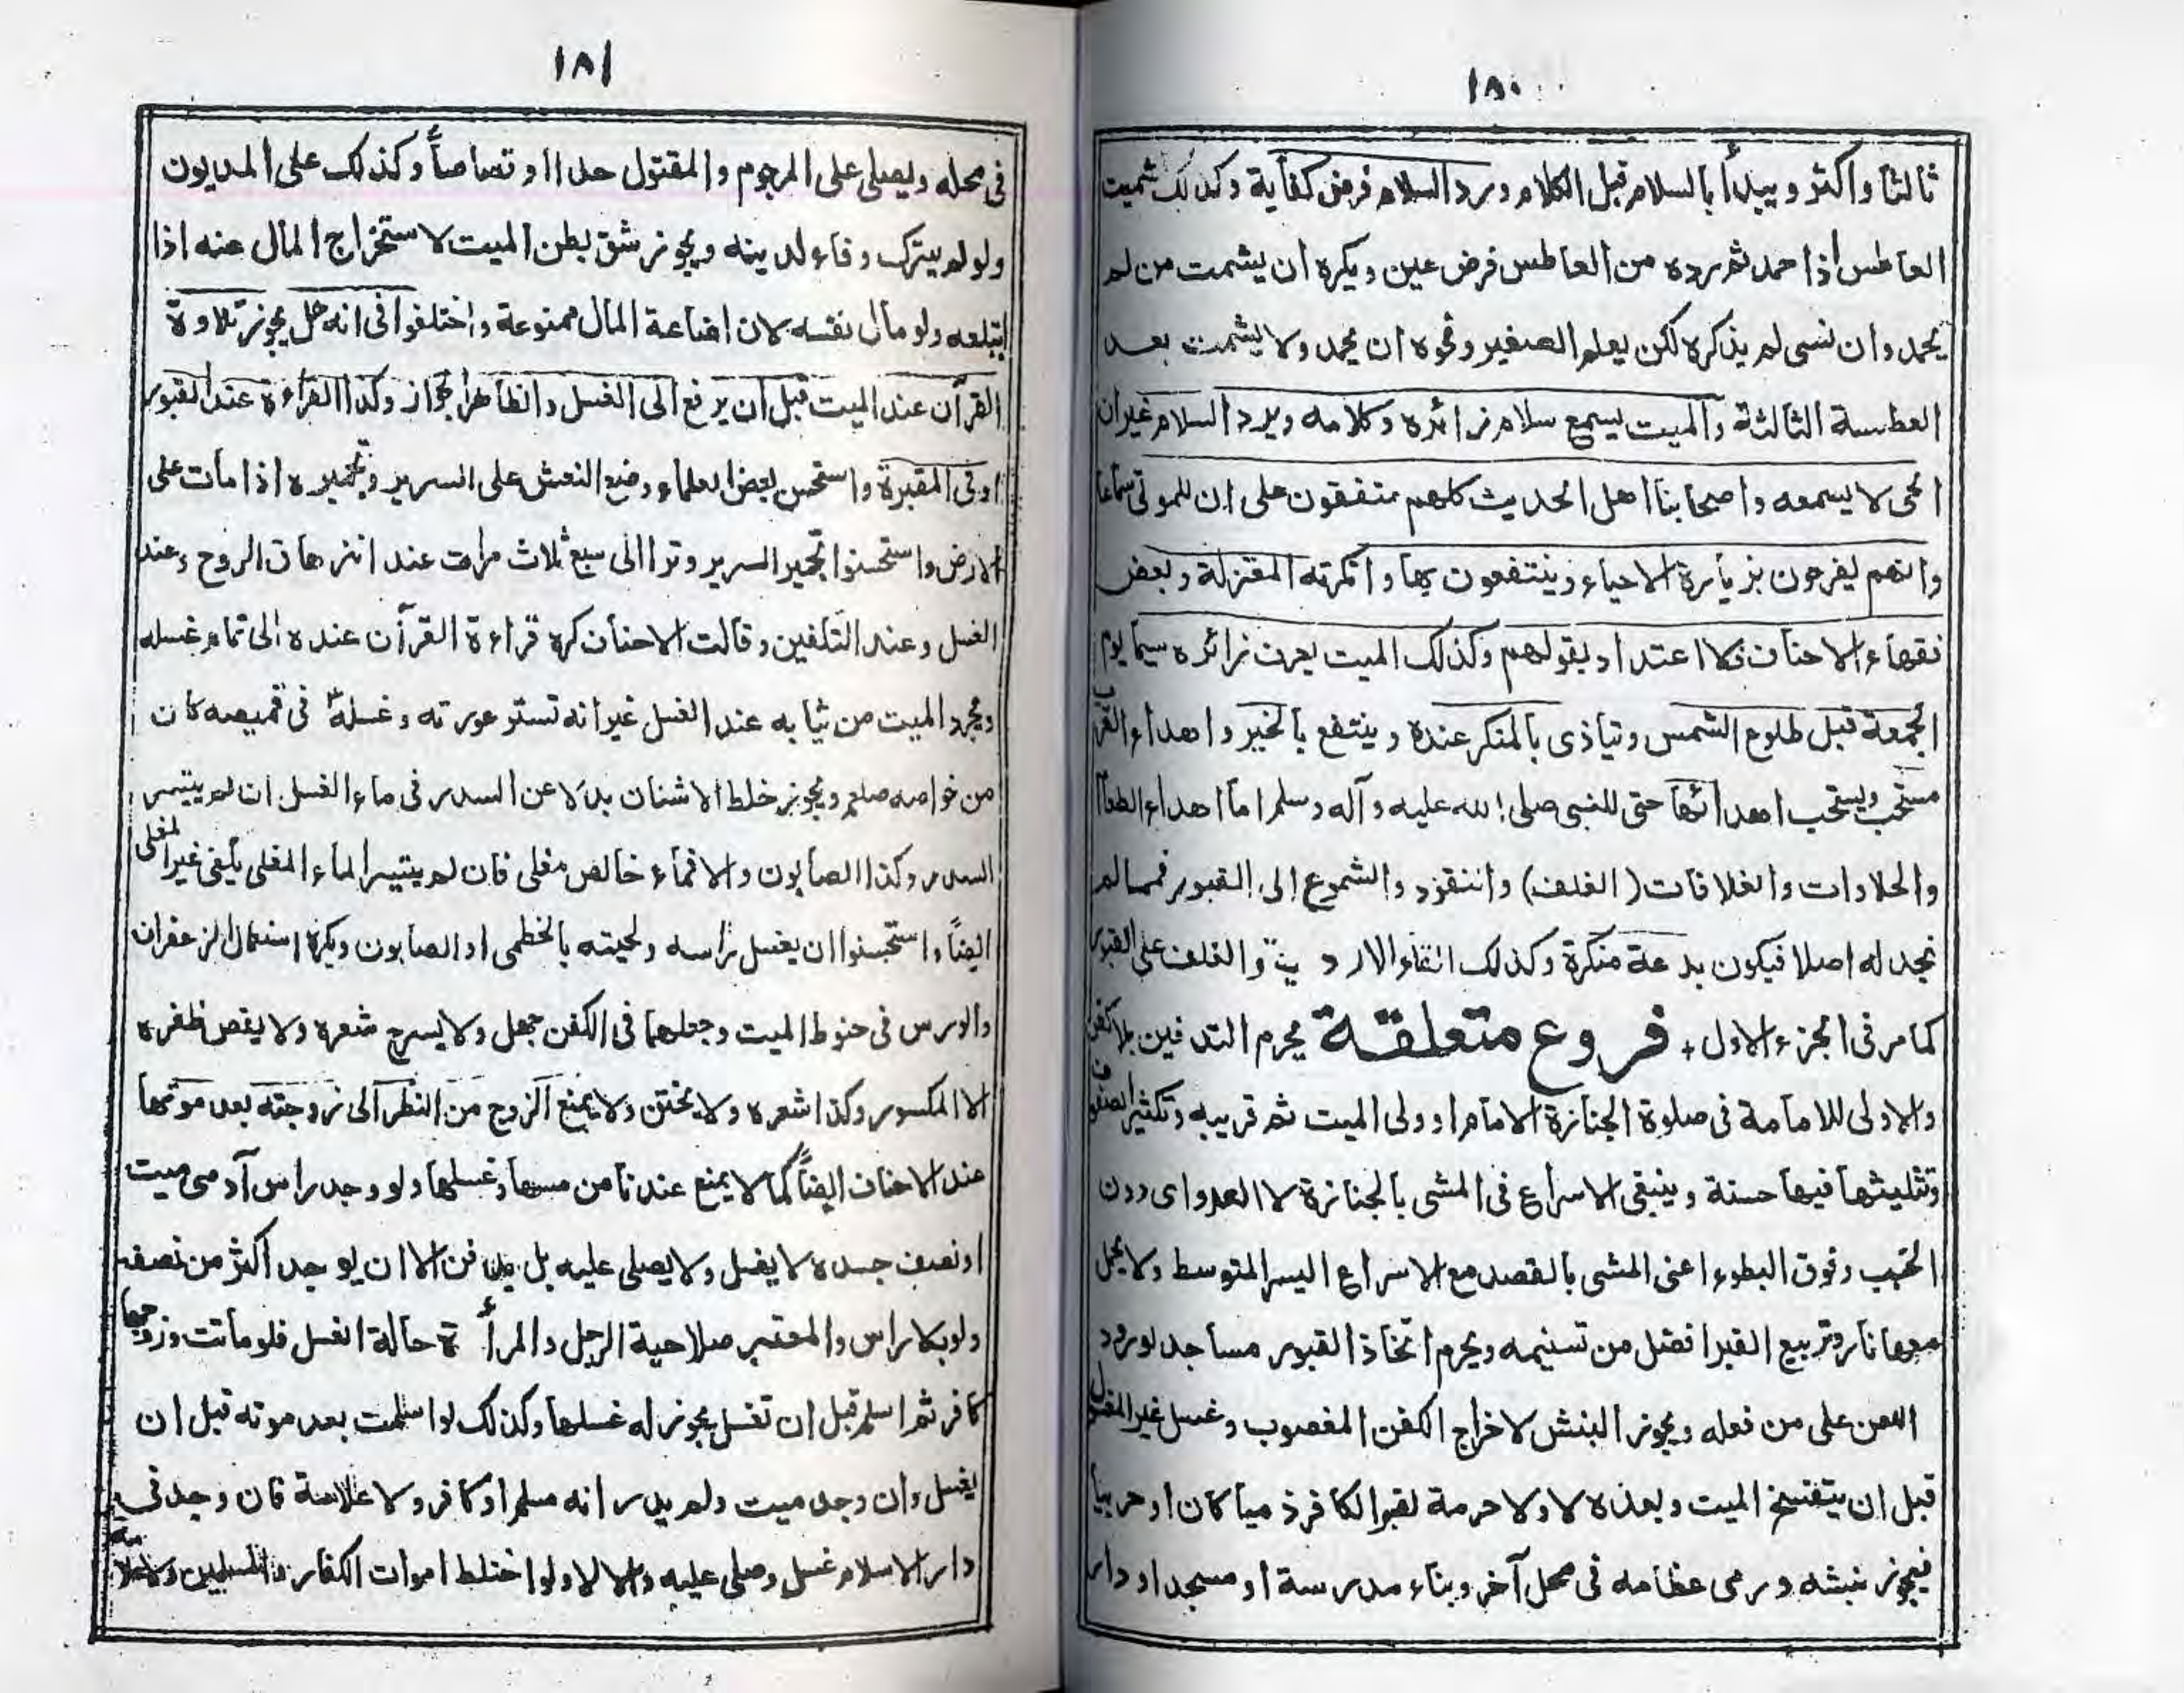 ١٨٠
ثالثا واكثر ويبدأ بالسلام قبل الكلام ورد السلام فرض كفاية وكذلك تشميت
العاطس اذا حمد ثم رده من العاطس فرض عين ويكره ان يشمت من لم
يحمد وان نسى لم يذكره لكن يعلم الصغير ونحوه ان يحمد ولا يشمت بعد
العطسة الثالثة والميت يسمع سلام زائره وكلامه ويرد السلام غير ان
الحى لا يسمعه واصحابنا اهل الحديث كلهم متفقون على ان للموتى سماعا
وانهم ليفرحون بزيارة الاحياء وينتفعون بها وانكرته المعتزلة وبعض
فقهاء الاحناف فلا اعتداد بقولهم وكذلك الميت يعرف زائره سيما يوم
الجمعة قبل طلوع الشمس ويتاذى بالمنكر عنده وينتفع بالخير واهداء القرب
مستحب ويستحب اهدائها حتى للنبى صلى الله عليه وآله وسلم اما اهداء الطعام
والحلاوات والغلافات (الغلف) والنقود والشموع إلى القبور فمما لم
نجد له اصلا فيكون بدعة منكرة وكذلك القاء الاردية والغلف على القبور
كما مر فى الجزء الاول + فروع متعلقة يحرم التدفين بلا كفن
والاولى للامامة فى صلوة الجنازة الامام او ولى الميت ثم قريبه وتكثير الصفوف
وتثليثها فيها حسنة وينبغى الاسراع فى المشى بالجنازة لا العدو اى دون
الخبب وفوق البطوء اعنى المشى بالقصد مع الاسراع اليسر المتوسط ولا يحمل
معها نار وتربيع القبر افضل من تسنيمه ويحرم اتخاذ القبور مساجد لورود
اللعن على من فعله ويجوز النبش لاخراج الكفن المغصوب وغسل غير المغسل
قبل ان يتفسخ الميت وبعده لا ولا حرمة لقبر الكافر ذميا كان او حربيا
فيجوز نبشه ورمى عظامه فى محل آخر وبناء مدرسة او مسجد او دار
١٨١
فى محله ويصلى على المرجوم والمقتول حدا او قصاصاً وكذلك على المديون
ولو لم يترك وفاء لدينه ويجوز شق بطن الميت لاستخراج المال عنه اذا
ابتلعه ولو مال نفسه لان اضاعة المال ممنوعة واختلفوا فى انه هل يجوز تلاوة
القرآن عند الميت قبل ان يرفع الى الغسل والظاهر الجواز وكذا القراءة عند القبور
اوفى المقبرة واستحسن بعض العلماء وضع النعش على السرير وتجميره اذا مات على
الارض واستحسنوا تجمير السرير وترا الى سبع ثلاث مرات عند انزهاق الروح وعند
الغسل وعند التكفين وقالت الاحناف كره قراءة القرآن عنده الى تمام غسله
ويجرد الميت من ثيابه عند الغسل غير انه تستر عورته وغسله فى قميصه كان
من خواصه صلعم ويجوز خلط الاشنان بدلا عن السدر فى ماء الغسل ان لم يتيسر
السدر وكذا الصابون والا فماء خالص مغلى فان لم يتيسر الماء المغلى يكفى غير المغلى
ايضاً واستحسنوا ان يغسل راسه ولحيته بالخطمى او الصابون ويكره استعمال الزعفران
والورس فى حنوط الميت وجعلهما فى الكفن جهل ولا يسرح شعره ولا يقص ظفره
الا المكسور وكذا شعره ولا يختن ولا يمنع الزوج من النظر الى زوجته بعد موتها
عند الاحناف ايضاً كما لا يمنع عندنا من مسها وغسلها ولو وجد راس آدمى ميت
او نصف جسده لا يغسل ولا يصلى عليه بل يدفن الا ان يوجد اكثر من نصفه
ولو بلا راس والمعتبر صلاحية الرجل والمرأة حالة الغسل فلو ماتت وزوجها
كافر ثم اسلم قبل ان تغسل يجوز له غسلها وكذلك لو اسلمت بعد موته قبل ان
يغسل وان وجد ميت ولم يدر انه مسلم او كافر ولا علامة فان وجد فى
دار الاسلام غسل وصلى عليه والا لا ولو اختلط اموات الكفار بالمسلمين ولا علامة